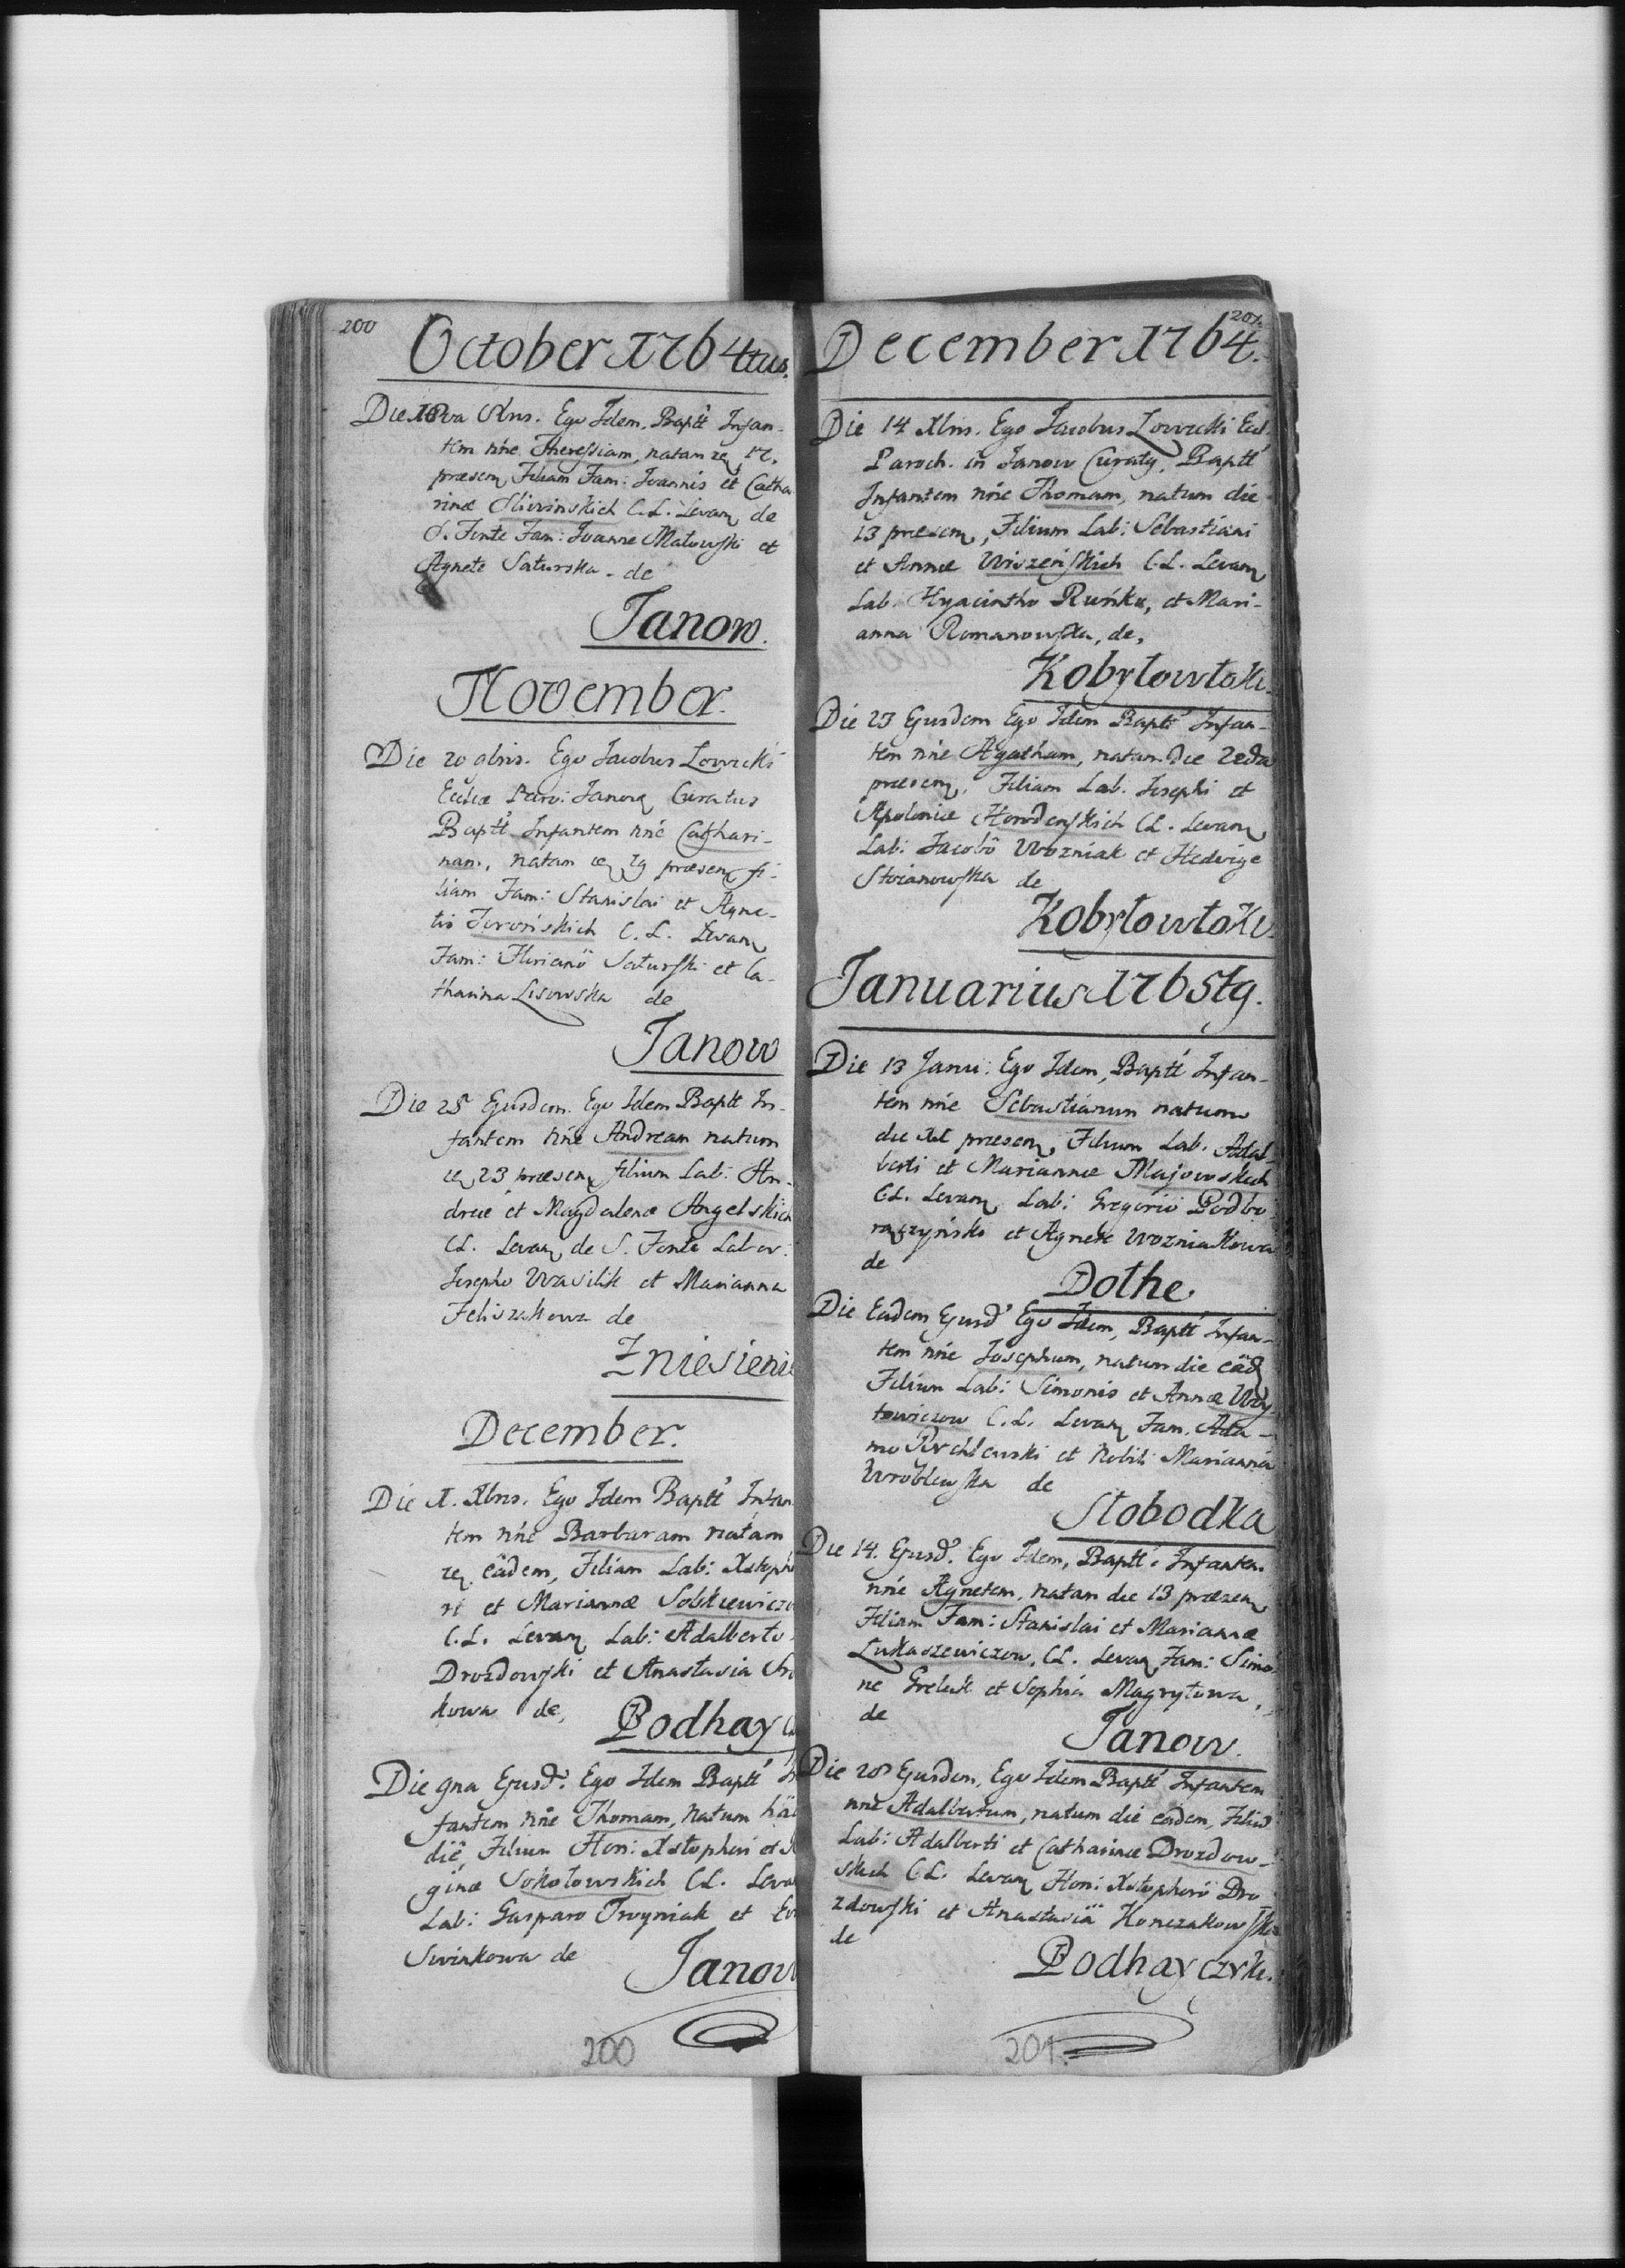 200
October 1764tus.
Die 18va 8bris. Ego Idem. Baptt Infan-
tem nñe Theressiam, natam
præsen, Filiam Fam: Joannis et Catha
rinæ Sliwinskich C.L. Levan de
S. Fonte Fam: Joanne Małowski et
Agnete Saturska. de
Janow.
November.
Die 20 9bris. Ego Jacobus Lowicki
Eccliæ Paro: Janov Curatus
Baptt Infantem nñe Cathari-
nam, natam præsen fi-
liam Fam: Stanislai et Agne-
tis C.L. Levan
Fam: Floriano Saturski et Ca-
tharina Lisowska de
Janow
Die 25 Ejusdem. Ego Idem Baptt In-
fantem nñe Andream natum
23 præsen filium Lab: An-
dreæ et Magdalenæ Angelskich
CL. Levan de S. Fonte Labor:
Josepho Wasilik et Marianna
Feliszkowa de
Zniesieni
December.
Die 1. Xbris. Ego Idem Baptt Infan
tem nñe Barbaram natam
eâdem, Filiam Lab: Xstopho
ri et Mariannæ Sobkiewiczo
C.L. Levan Lab: Adalberto
Drozdowski et Anastasia
kowa de,
Podhay
Die 9na Ejusd. Ego Idem Baptt
fantem nñe Thomam, natum
die, Filium Hon: Xstophori et
ginæ Sokołowskich CL. Leva
Lab: Gasparo Troyniak et
Swinkowa de
Janow
200
201.
December 1764.
Die 14 Xbris. Ego Jacobus Lowicki Eccl.
Paroch. in Janow Curaty, Baptt
Infantem nñe Thomam, natum die
13 præsen, Filium Lab: Sebastiani
et Annæ Wiszeńskich C.L. Levan
Lab: Hyacintho Ruńko, et Mari-
anna Romanowska, de,
Kobyłowłoki.
Die 23 Ejusdem Ego Idem Baptt Infan-
tem nñe Agatham, natam die 22da
præsen, Filiam Lab. Josephi et
Apoloniæ Howdenskich CL. Levan
Lab: Jacobô Wozniak et Hedvige
Stoianowska de
Kobyłowłoki.
Januarius 1765tg.
Die 13 Janu: Ego Idem, Baptt Infan-
tem nñe Sebastianum natum
die præsen, Filium Lab. Adal-
berti et Mariannæ Majowskich
CL. Levan Lab: Gregorio Podbo
raczyński et Agnete Wozniakowa
de
Dołhe.
Die Eadem Ejusd Ego Idem, Baptt Infan-
tem nñe Josephum, natum die eâd
Filium Lab: Simonis et Annæ Woy-
towiczow C.L. Levan Fam. Ada-
mo Rychlewski et Nobili Marianna
Wroblewska de
Słobodka
Die 14. Ejusd. Ego Idem, Baptt Infantem
nñe Agnetem, natam die 13 præsen
Filiam Fam: Stanislai et Mariannæ
Łukaszewiczow, CL. Levan Fam: Simo-
ne Greluk et Sophia Magrytowa,
de
Janow.
Die 20 Ejusdem, Ego Idem Baptt Infantem
nñe Adalbertum, natum die eâdem, Filiũ
Lab: Adalberti et Catharinæ Drozdow-
skich C.L. Levan Hon: Xstophorô Dro
zdowski et Anastasiâ Konczakowska
de
Podhayczyki.
201.